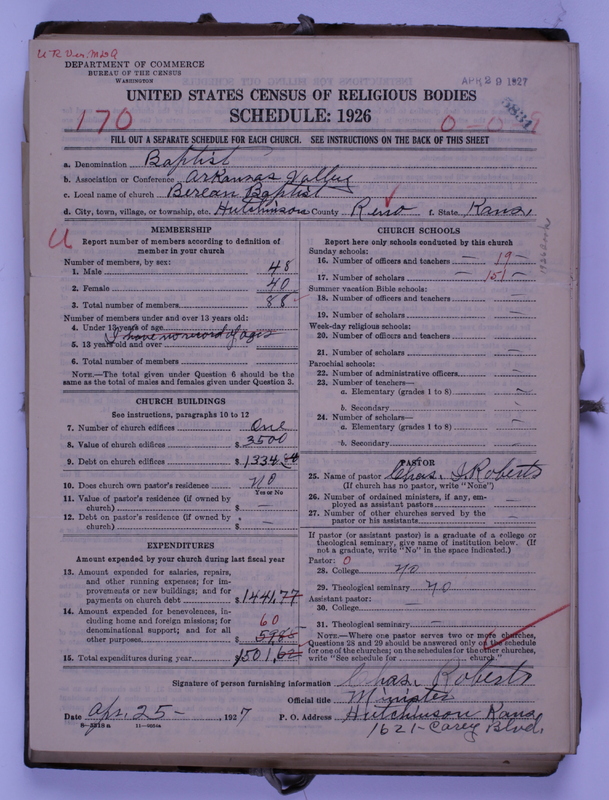 DEPARTMENT OF COMMERCE
BUREAU OF THE CENSUS
WASHINGTON
APR 29 1927
UNITED STATES CENSUS OF RELIGIOUS BODIES
SCHEDULE: 1926
170
0-0-9
FILL OUT A SEPARATE SCHEDULE FOR EACH CHURCH. SEE INSTRUCTIONS ON THE BACK OF THIS SHEET
a. Denomination Baptist
b. Association or Conference Arkansas Valley
c. Local name of church Berean Baptist
d. City, town, village, or township, etc. Hutchinson County Reno f. State Kans.
MEMBERSHIP
Report number of members according to definition of member in your church
Number of members, by sex:
1. Male 48
2. Female 40
3. Total number of members 88
Number of members under and over 13 years old:
4. Under 13 years of age
I have no record of ages
5. 13 years old and over
6. Total number of members
NOTE.—The total given under Question 6 should be the
same as the total of males and females given under Question 3.
CHURCH BUILDINGS
See instructions, paragraphs 10 to 12
7. Number of church edifices One
8. Value of church edifices $ 3500
9. Debt on church edifices $ 1334
10. Does church own pastor's residence no
Yes or No
11. Value of pastor's residence (if owned by
church) $ —
12. Debt on pastor's residence (if owned by
church) $ —
EXPENDITURES
Amount expended by your church during last fiscal year
13. Amount expended for salaries, repairs,
and other running expenses; for im-
provements or new buildings; and for
payments on church debt $1441.77
14. Amount expended for benevolences, in-
cluding home and foreign missions; for
denominational support; and for all
60
other purposes $
15. Total expenditures during year
CHURCH SCHOOLS
Report here only schools conducted by this church
Sunday schools:
16. Number of officers and teachers — 19 —
17. Number of scholars — 151 —
Summer vacation Bible schools:
18. Number of officers and teachers —
19. Number of scholars —
Week-day religious schools:
20. Number of officers and teachers —
21. Number of scholars —
Parochial schools:
22. Number of administrative officers —
23. Number of teachers—
a. Elementary (grades 1 to 8) —
b. Secondary —
24. Number of scholars—
a. Elementary (grades 1 to 8) —
b. Secondary —
PASTOR
25. Name of pastor Chas. I. Roberts
(If church has no pastor, write "None")
26. Number of ordained ministers, if any, em-
ployed as assistant pastors —
27. Number of other churches served by the
pastor or his assistants —
If pastor (or assistant pastor) is a graduate of a college or
theological seminary, give name of institution below. (If
not a graduate, write "No" in the space indicated.)
Pastor: 0
28. College no
29. Theological seminary no
Assistant pastor:
30. College —
31. Theological seminary —
NOTE.—Where one pastor serves two or more churches,
Questions 28 and 29 should be answered only on the schedule
for one of the churches; on the schedules for the other churches,
write "See schedule for church."
Signature of person furnishing information Chas. Roberts
Official title Minister
Date Apr. 25 —, 1927 P. O. Address Hutchinson Kans
1621 - Carey Blvd.
8-2818a